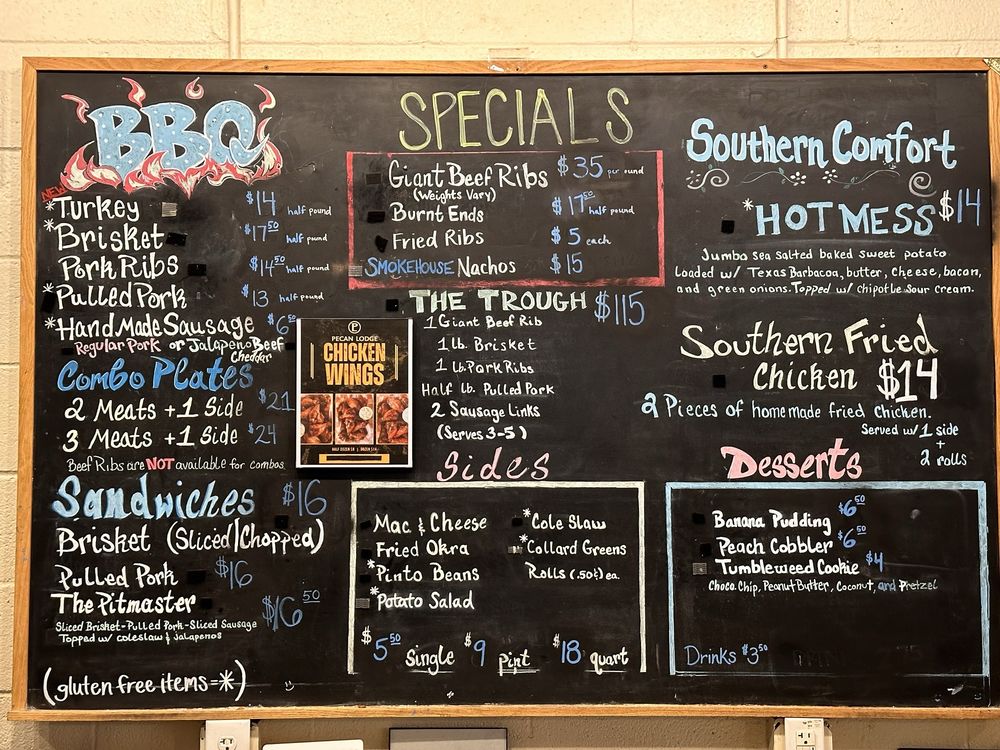 BBQ
NEW
*Turkey $14 half pound
*Brisket $17.50 half pound
Pork Ribs $14.50 half pound
*Pulled Pork $13 half pound
*Hand Made Sausage $6.50
Regular Pork or Jalapeno Beef
Cheddar
Combo Plates
2 Meats + 1 Side $21
3 Meats + 1 Side $24
Beef Ribs are NOT available for combos
Sandwiches $16
Brisket (Sliced/Chopped)
Pulled Pork $16
The Pitmaster $16.50
Sliced Brisket-Pulled Pork-Sliced Sausage
Topped w/ coleslaw & jalapenos
(gluten free items=*)
SPECIALS
Giant Beef Ribs $35 per ound
(Weights Vary)
Burnt Ends $17.50 half pound
Fried Ribs $5 each
SMOKEHOUSE Nachos $15
THE TROUGH $115
1 Giant Beef Rib
1 lb. Brisket
1 Lb. Pork Ribs
Half Lb. Pulled Pork
2 Sausage Links
(Serves 3-5)
PECAN LODGE
CHICKEN
WINGS
Sides
Mac & Cheese
Fried Okra
*Pinto Beans
*Potato Salad
*Cole Slaw
*Collard Greens
Rolls (.50¢) ea.
$5.50 Single $9 pint $18 quart
Southern Comfort
*HOT MESS $14
Jumbo sea salted baked sweet potato
Loaded w/ Texas Barbacoa, butter, cheese, bacon,
and green onions. Topped w/ chipotle sour cream.
Southern Fried
Chicken $14
2 Pieces of homemade fried chicken.
Served w/ 1 side
+
2 rolls
Desserts
Banana Pudding $6.50
Peach Cobbler $6.50
Tumbleweed Cookie $4
Choco. Chip, Peanut Butter, Coconut, and Pretzel
Drinks $3.50